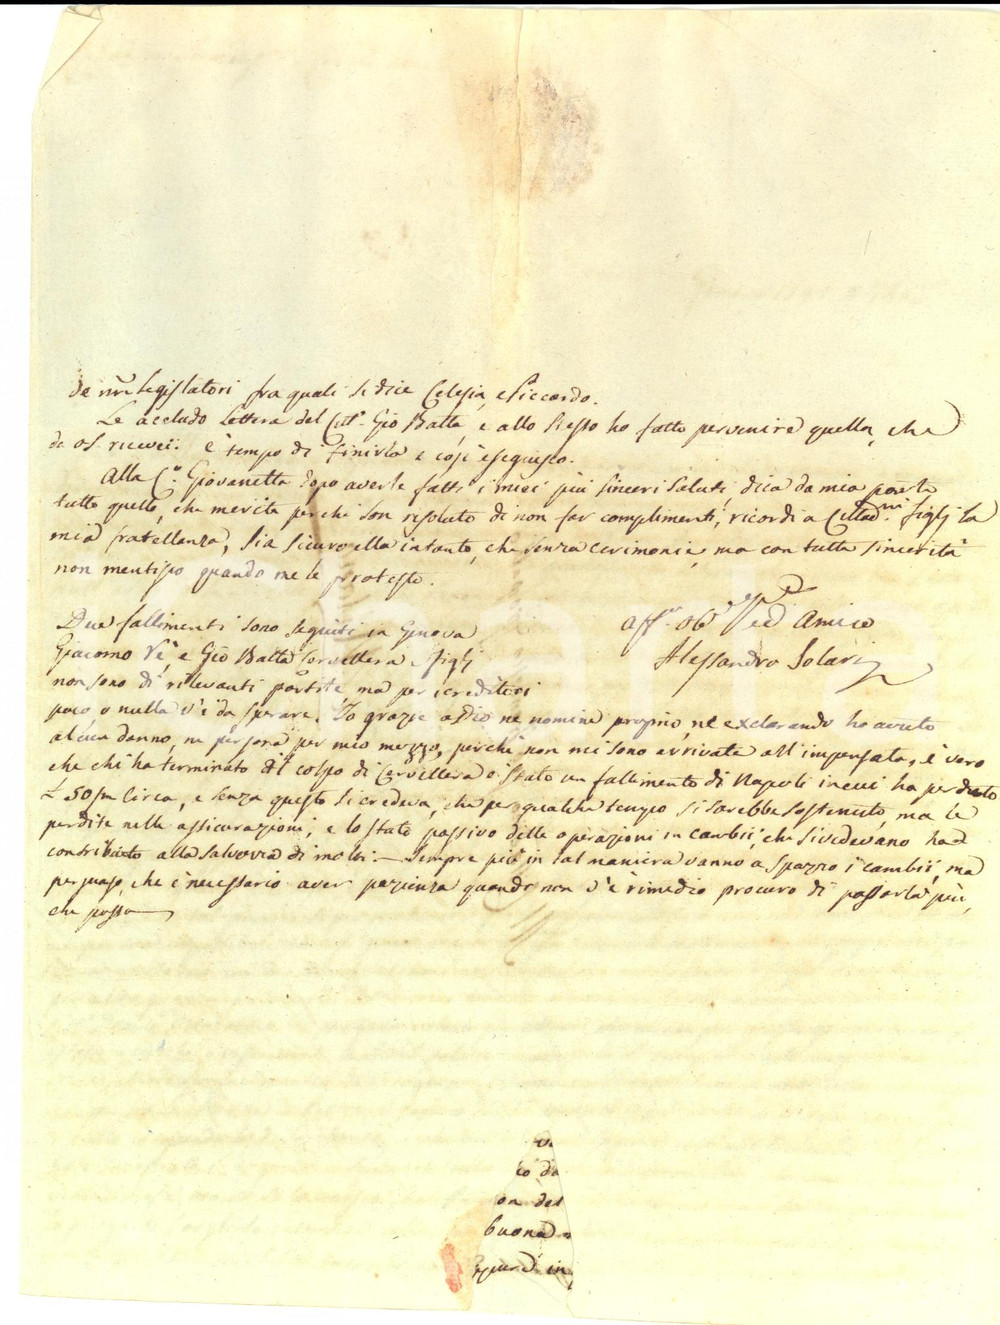 de nri Legislatori fra quali si dice Celesia, e Piccardo.
Le accludo Lettera del Citt.º Gio Batta, e allo stesso ho fatto pervenire quella, che
da ricevei: è tempo di finirla e così eseguisco.
Alla C.ª Giovanetta dopo averle fatti i miei più sinceri saluti, dica da mia parte
tutto quello, che merita perchè son risoluto di non far complimenti, ricordi a Cittad.ni figlj la
mia fratellanza, sia sicuro ella intanto, che senza cerimonia, ma con tutta sincerità
non mentisco quando me le protesto.
aff.º obb.º ed Amico
Alessandro Solari
Due fallimenti sono seguiti in Genova
Giacomo Vè, e Gio Batta Corvellera e figlj
non sono di rilevanti partite, ma per i creditori
poco o nulla v'è da sperare. Io grazie a Dio ne nomine proprio, nè exclarando ho avuto
alcun danno, ne persona per mio mezzo, perchè non mi sono arrivate all'impensata, è vero
che chi ha terminato il colpo di Corvellera è stato un fallimento di Napoli in cui ha perduto
£ 50/m Circa, e senza questo si credeva, che per qualche tempo si sarebbe sostenuto, ma le
perdite nelle assicurazioni, e lo stato passivo delle operazioni in cambij, che si vedevano ha
contribuito alla salvezza di molti. - Sempre più in tal maniera vanno a spazzo i cambij, ma
persuaso, che è necessario aver pazienza quando non v'è rimedio procuro di passarla più,
che posso
co da
on del
buona
in